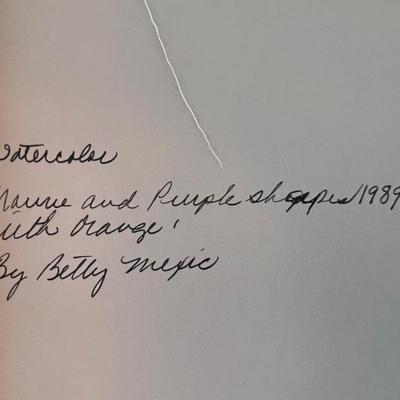 Watercolor
Mauve and Purple shapes 1989
with Orange'
By Betty Mexic